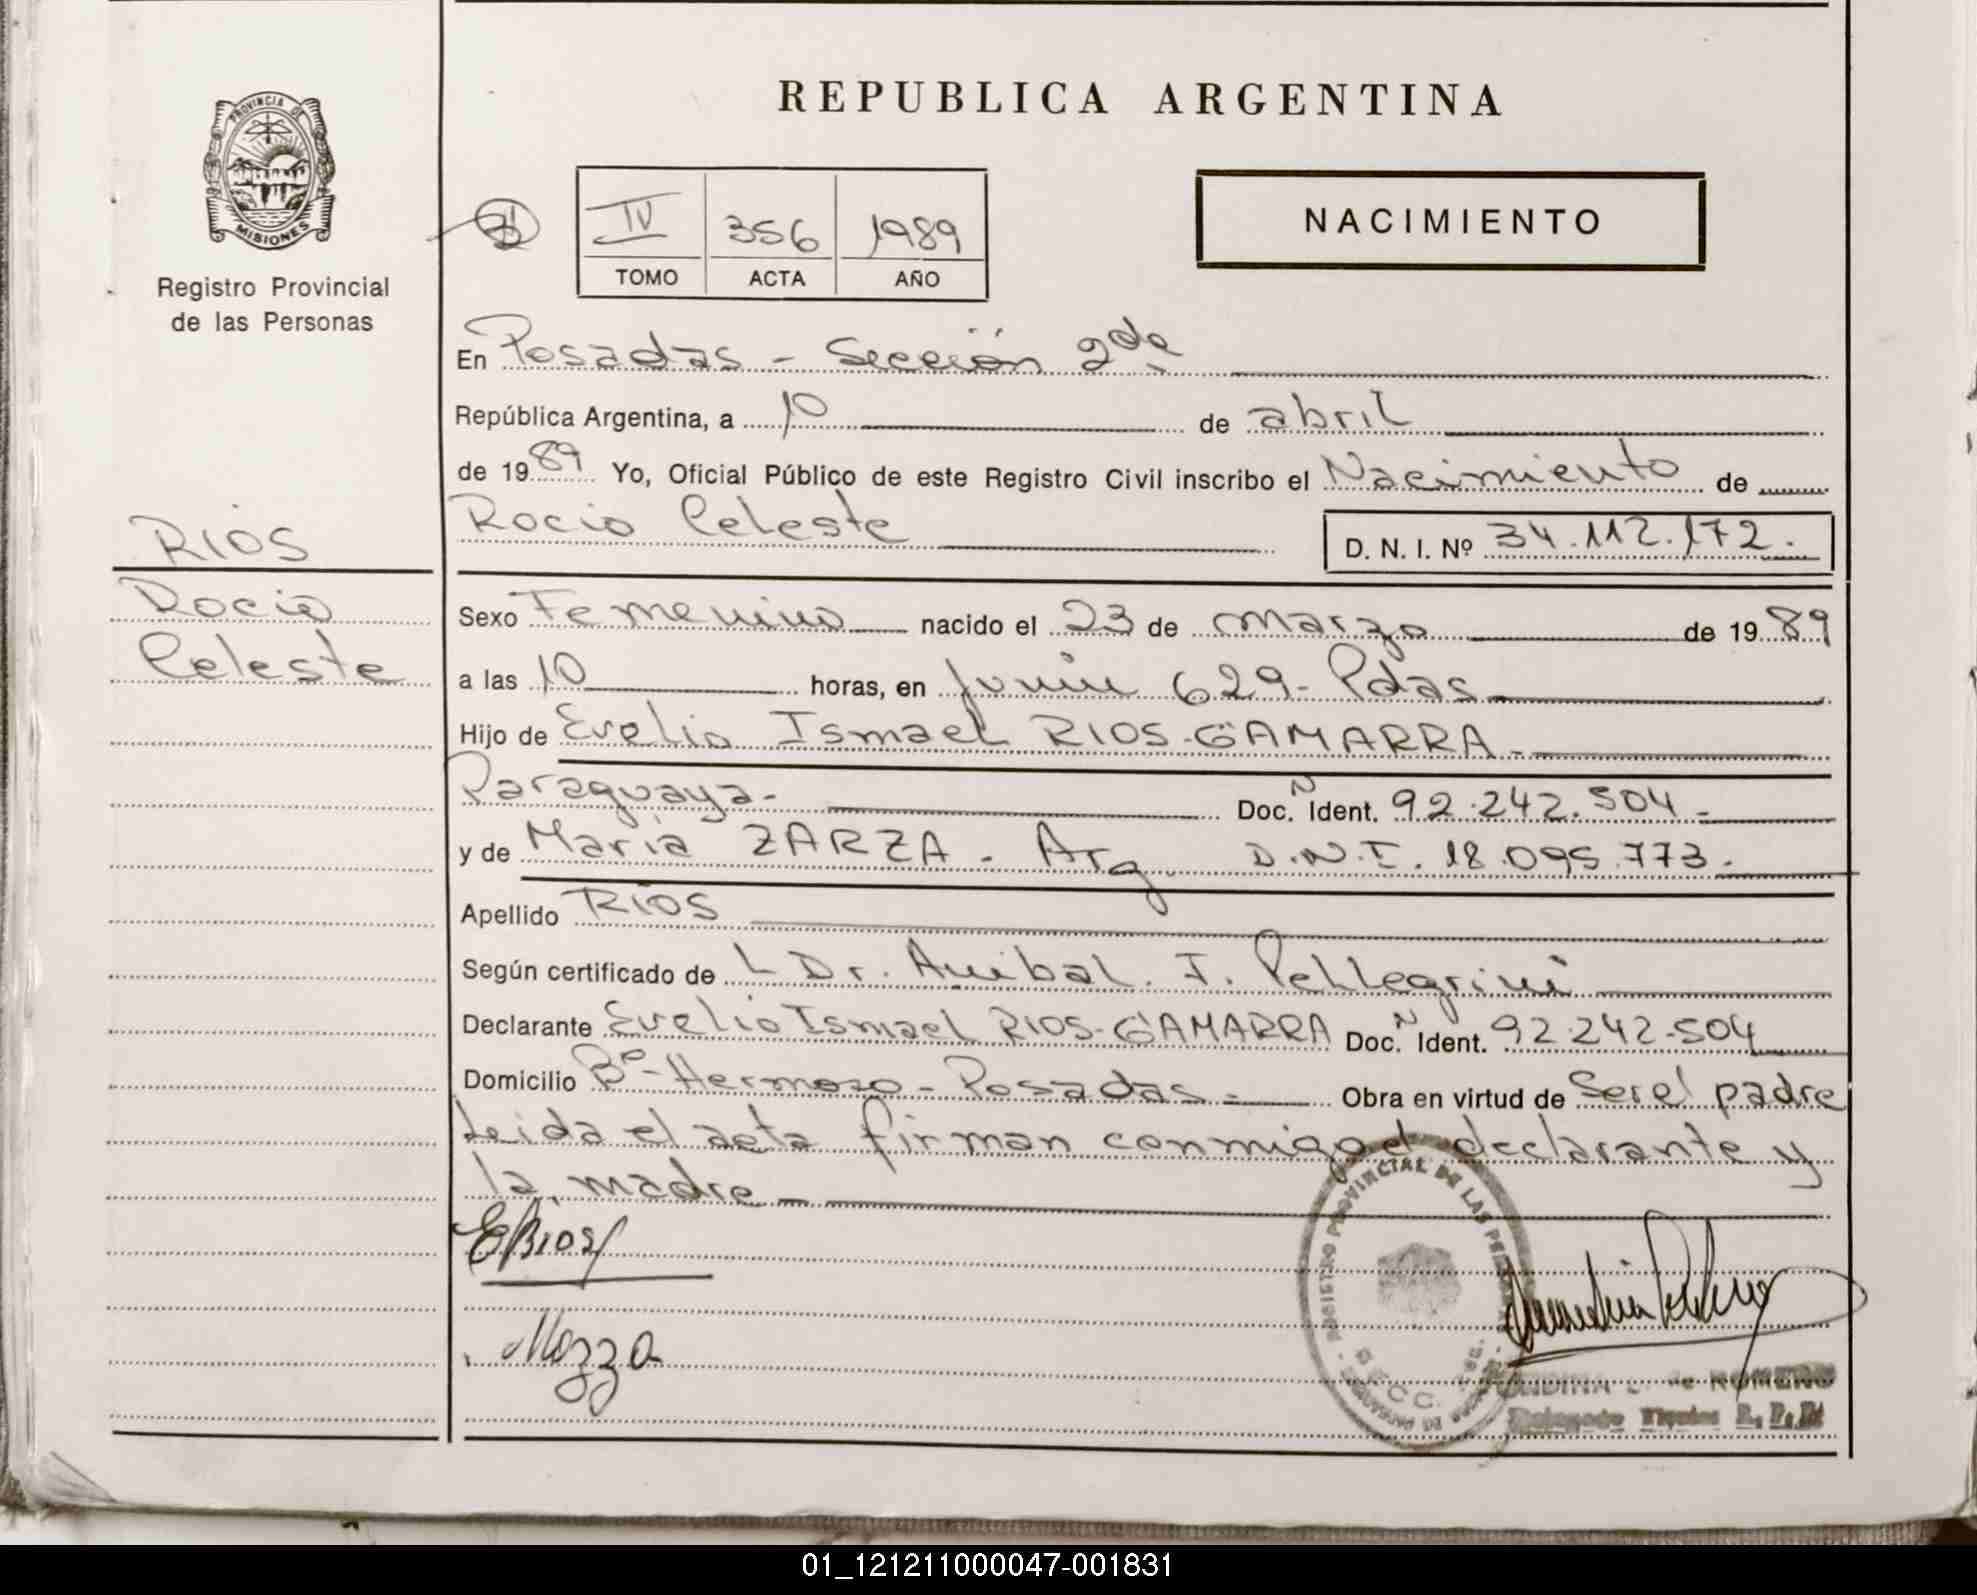 REPUBLICA ARGENTINA
PROVINCIA DE
MISIONES
Registro Provincial
de las Personas
IV 356 1989
TOMO ACTA AÑO
NACIMIENTO
En Posadas - Sección 2da
República Argentina, a 10 de abril
de 1989 Yo, Oficial Público de este Registro Civil inscribo el Nacimiento de
Rocio Celeste D. N. I. Nº 34.112.172.
RIOS
Rocio
Celeste
Sexo Femenino nacido el 23 de marzo de 1989
a las 10 horas, en Junin 629- Pdas
Hijo de Evelio Ismael RIOS-GAMARRA-
Paraguaya- Doc. N Ident. 92.242.504-
y de Maria ZARZA - Arg D.N.I. 18.095.773-
Apellido RIOS
Según certificado de L Dr. Anibal. J. Pellegrini
Declarante Evelio Ismael RIOS-GAMARRA Doc. N Ident. 92.242.504
Domicilio Bº-Hermoso-Posadas- Obra en virtud de Ser el padre
Leida el acta firman conmigo el declarante y
la madre-
ERios
REGISTRO PROVINCIAL DE LAS
de ROMERO
01_121211000047-001831